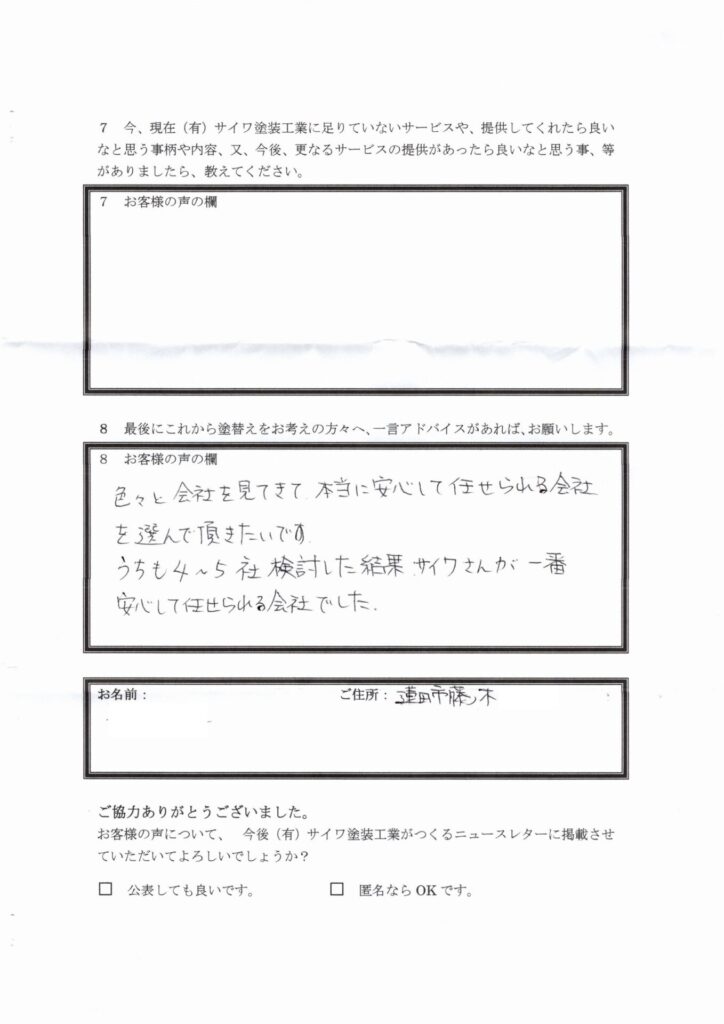 7 今、現在（有）サイワ塗装工業に足りていないサービスや、提供してくれたら良い
なと思う事柄や内容、又、今後、更なるサービスの提供があったら良いなと思う事、等
がありましたら、教えてください。
7 お客様の声の欄
8 最後にこれから塗替えをお考えの方々へ、一言アドバイスがあれば、お願いします。
8 お客様の声の欄
色々と会社を見てきて本当に安心して任せられる会社
を選んで頂きたいです
うちも4~5社検討した結果サイワさんが一番
安心して任せられる会社でした.
お名前： ご住所： 蓮田市藤ノ木
ご協力ありがとうございました。
お客様の声について、 今後（有）サイワ塗装工業がつくるニュースレターに掲載させ
ていただいてよろしいでしょうか？
□ 公表しても良いです。 □ 匿名なら OK です。